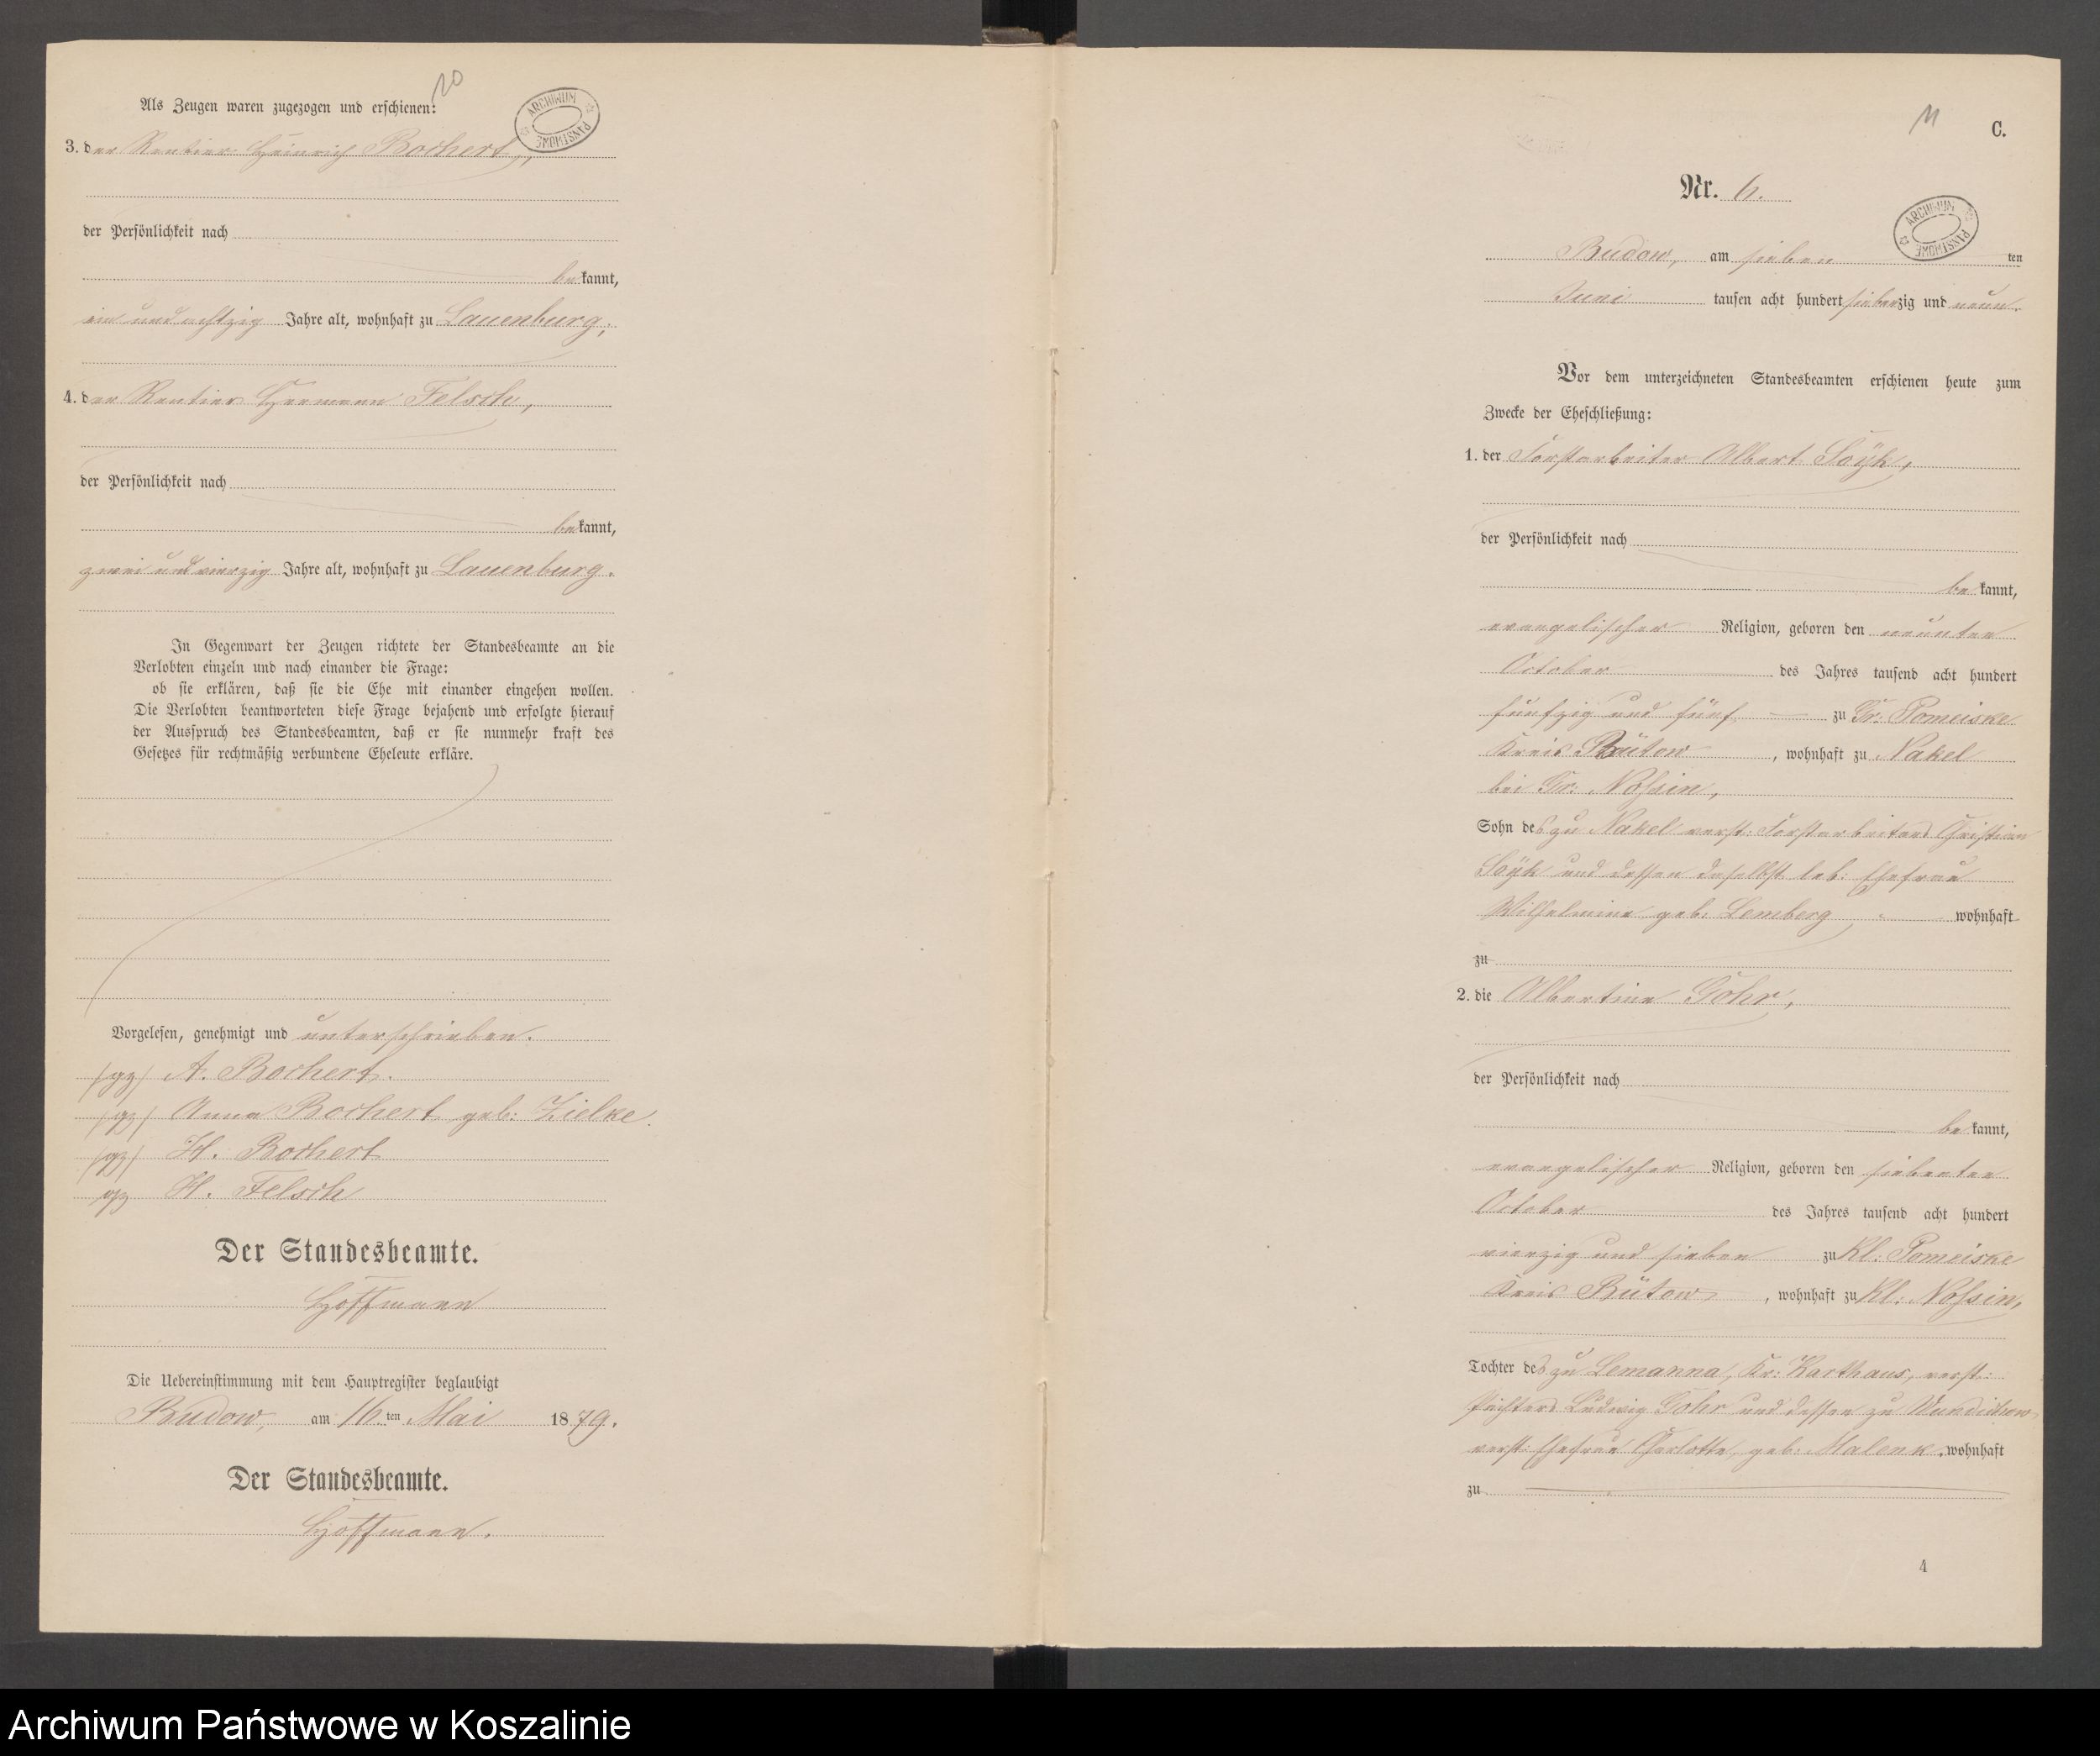 20
Als Zeugen waren zugezogen und erschienen:
ARCHIWUM PAŃSTWOWE
3. der Rentier Heinrich Bochert,
der Persönlichkeit nach
bekannt,
ein und achtzig Jahre alt, wohnhaft zu Lauenburg,
4. der Rentier Hermann Felsch,
der Persönlichkeit nach
bekannt,
zwei und vierzig Jahre alt, wohnhaft zu Lauenburg.
In Gegenwart der Zeugen richtete der Standesbeamte an die
Verlobten einzeln und nach einander die Frage:
ob sie erklären, daß sie die Ehe mit einander eingehen wollen.
Die Verlobten beantworteten diese Frage bejahend und erfolgte hierauf
der Ausspruch des Standesbeamten, daß er sie nunmehr kraft des
Gesetzes für rechtmäßig verbundene Eheleute erkläre.
Vorgelesen, genehmigt und unterschrieben.
(gz) A. Bochert.
(gz) Anna Bochert geb: Zielke.
(gz) H. Bochert
gz H. Felsch
Der Standesbeamte.
Hoffmann
Die Uebereinstimmung mit dem Hauptregister beglaubigt
Budow, am 16.ten Mai 1879.
Der Standesbeamte.
Hoffmann.
11
C.
Nr. 6.
ARCHIWUM PAŃSTWOWE
Budow, am sieben ten
Juni tausen acht hundert siebenzig und neun.
Vor dem unterzeichneten Standesbeamten erschienen heute zum
Zwecke der Eheschließung:
1. der Forstarbeiter Albert Soÿk,
der Persönlichkeit nach
bekannt,
evangelischer Religion, geboren den neunten
October des Jahres tausend acht hundert
fünfzig und fünf zu Gr: Pomeiske
Kreis Bütow, wohnhaft zu Nakel
bei Gr: Nossin,
Sohn des zu Nakel verst: Forstarbeiters Christian
Soÿk und dessen daselbst leb: Ehefrau
Wilhelmine geb: Lemberg wohnhaft
zu
2. die Albertine Gohr,
der Persönlichkeit nach
bekannt,
evangelischer Religion, geboren den siebenten
October des Jahres tausend acht hundert
vierzig und sieben zu Kl: Pomeiske
Kreis Bütow, wohnhaft zu Kl: Nossin,
Tochter des zu Lemanna, Kr: Karthaus, verst:
Pächters Ludwig Gohr und dessen zu Wundichow
verst: Ehefrau Charlotte, geb: Malenk, wohnhaft
zu
4
Archiwum Państwowe w Koszalinie